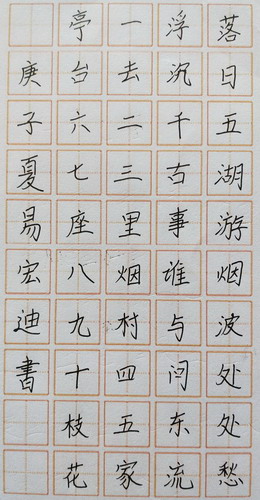 落日五湖游烟波处处愁
浮沉千古事谁与问东流
一去二三里烟村四五家
亭台六七座八九十枝花
庚子夏易宏迪書